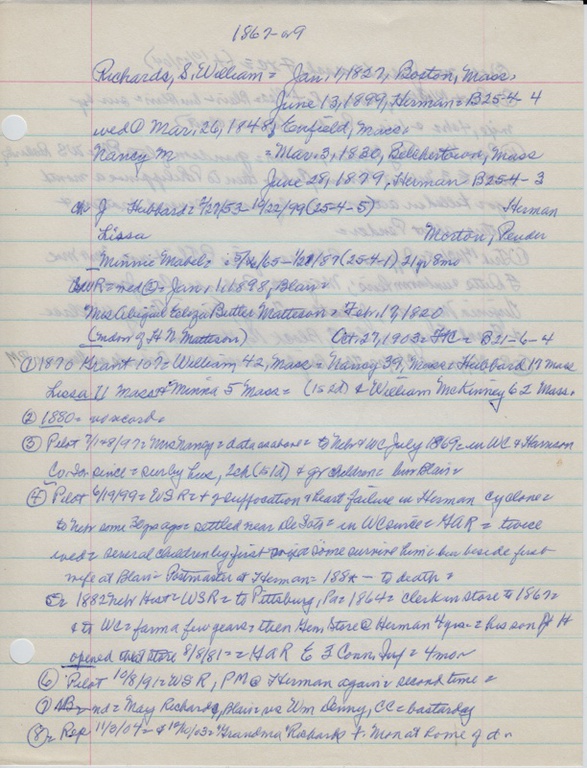 1867-a9
Richards, S. William = Jan, 1, 1827, Boston, Mass.
June 13, 1899, Herman = B25-4-4
wed @ Mar, 26, 1848, Enfield, Mass.
Nancy M = Mar. 3, 1830, Belchertown, Mass
June 28, 1879, Herman B25-4-3
J Hubbard = 7/27/53-10/22/99 (25-4-5) Herman
Lissa Morton, Pender
Minnie Mabel = (25-4-1) 21 yr 8mo
WSR = wed @ = Jan, 1, 1898, Blair =
Mrs Abigail Eliza Butler Matteson = Feb. 17, 1820
(widow of H N Matteson) Oct. 27, 1903 = FC = B21-6-4
① 1870 Grant 107 = William 42, Mass = Nancy 39, Mass = Hubbard 17 Mass
Lissa 11 Mass & Minna 5 Mass = (1s 2d) & William McKinney 62 Mass.
② 1880 = no record =
③ Pilot 7/ /97 = Mrs Nancy = data as above = to Nebr & WC July 1869 = in WC & Harrison
Co. Ia. since = sur by hus, 2ch (1s 1d) & gr children = bur Blair =
④ Pilot 6/19/99 = WSR = + suffocation & heart failure in Herman cyclone =
to Nebr some 30 yrs ago = settled near De Soto = in WC since = GAR = twice
wed = several children by first some survive him = bur beside first
wife at Blair = Postmaster at Herman = 188* - to death =
⑤ = 1882 Nebr Hist = WSR = to Pittsburg, Pa = 1864 = clerk in store to 1867 =
& to WC = farm a few years = then Gen. Store @ Herman 4 yrs = his son J H
opened that store 8/8/81 = = GAR E 3 Conn, Inf = 4mo =
⑥ Pilot 10/8/91 = WSR, PM @ Herman again = second time =
⑦ nd = May Richards, Blair vs Wm Denny, CC = bastardy
⑧ = Rep 11/3/04 = & 10/10/03 = Grandma Richards + Mon at home of d =